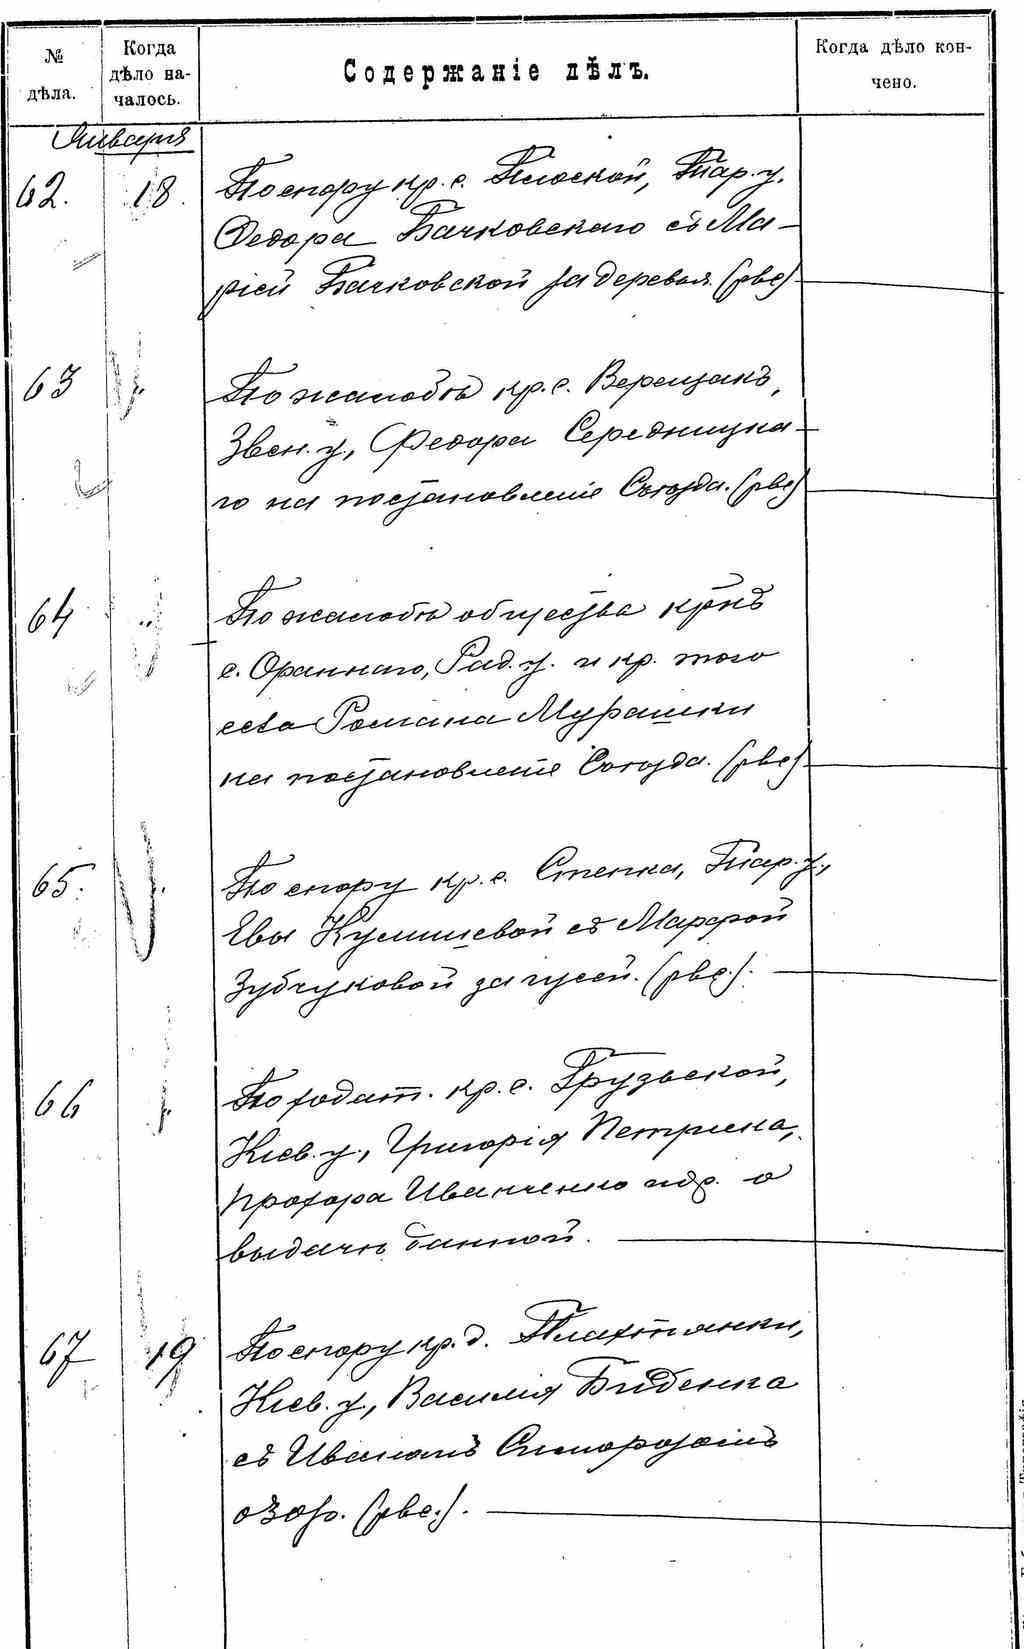 № дѣла.
Когда дѣло началось.
Содержаніе дѣлъ.
Когда дѣло кончено.
Января
62. 18. По спору кр. с. Плоской, Тар. у.
Федора Бачковскаго съ Ма-
ріей Бачковской за деревья. (рвс)
63 По жалобѣ кр. с. Верещакъ,
Звен. у., Федора Середницка-
го на постановленіе Съѣзда. (рвс)
64 По жалобѣ общества кр̃нъ
с. Ораннаго, Рад. у. и кр. того
села Романа Мурашки
на постановленіе Съѣзда. (рвс)
65. По спору кр. с. Степка, Тар. у.,
Евы Кулишевой съ Марфой
Зубчуковой за гусей. (рвс.).
66 По ходат. кр. с. Грузьской,
Кіев. у., Григорія Петрика,
Прохора Иванченко и др. о
выдачѣ данной.
67 19 По спору кр. д. Плахтянки,
Кіев. у., Василія Биденка
съ Иваномъ
(рвс.).